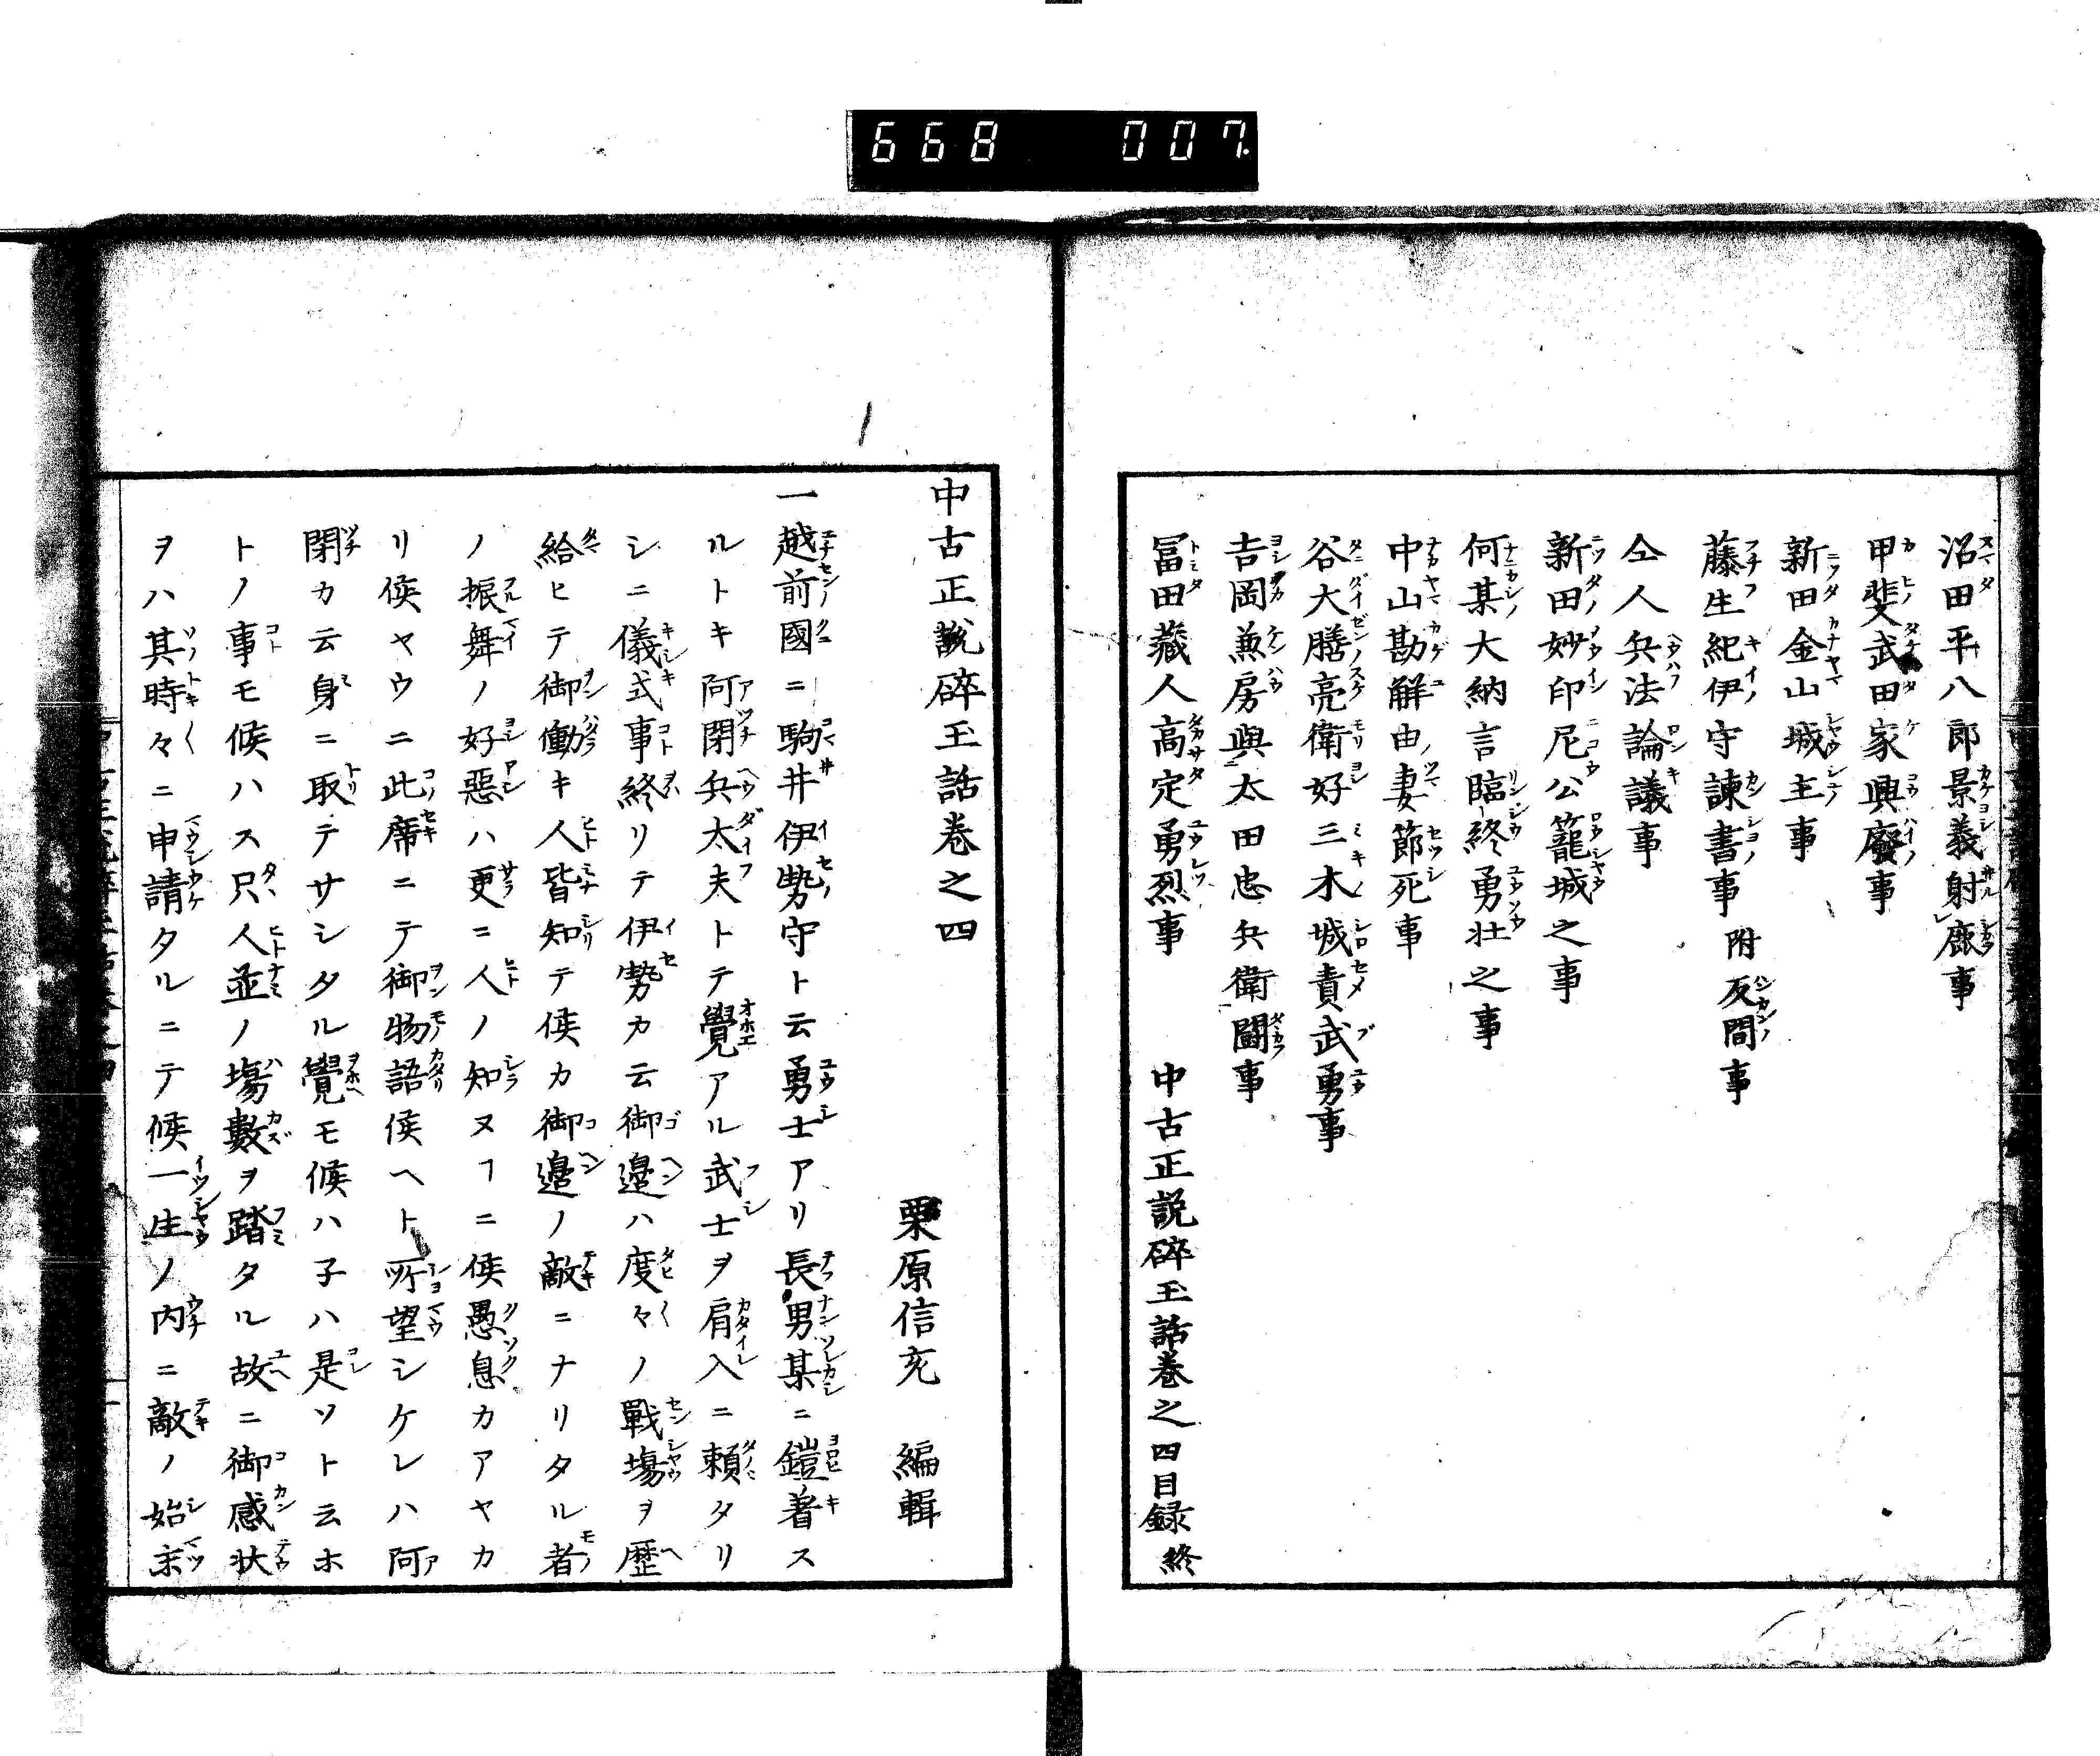 668 007
沼田平八郎景義射鹿事
甲斐武田家興廢事
新田金山城主事
藤生紀伊守諫書事 附反間事
仝人兵法論議事
新田妙印尼公籠城之事
何某大納言臨終勇壯之事
中山勘解由妻節死事
谷大膳亮衛好三木城責武勇事
吉岡兼房與太田忠兵衛鬪事
冨田藏人高定勇烈事
中古正説碎玉話卷之四目録終
中古正説碎玉話卷之四
栗原信充 編輯
一越前國ニ駒井伊勢守ト云勇士アリ長男某ニ鎧着ス
ルトキ阿閉兵太夫トテ覺アル武士ヲ肩入ニ頼タリ
シニ儀式事終リテ伊勢カ云御邉ハ度々ノ戰塲ヲ歷
給ヒテ御働キ人皆知テ候カ御邉ノ敵ニナリタル者
ノ振舞ノ好惡ハ更ニ人ノ知ヌヿニ候愚息カアヤカ
リ候ヤウニ此席ニテ御物語候ヘト所望シケレハ阿
閉カ云身ニ取テサシタル覺モ候ハ子ハ是ソト云ホ
トノ事モ候ハス只人並ノ塲數ヲ踏タル故ニ御感状
ヲハ其時々ニ申請タルニテ候一生ノ内ニ敵ノ始末